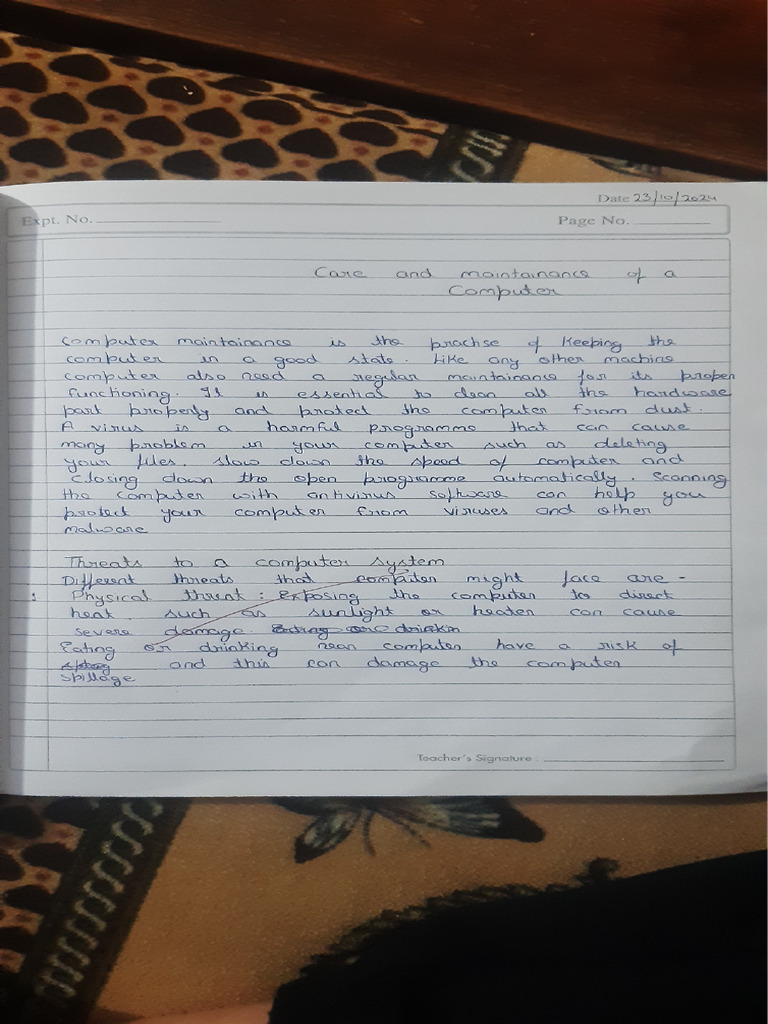 Date 23/10/2024
Expt. No.
Page No.
Care and maintainance of a
Computer
Computer maintainance is the practise of Keeping the
computer in a good state. Like any other machine
computer also need a regular maintainance for its proper
functioning. It is essential to clean all the hardware
part properly and protect the computer from dust.
A virus is a harmful programme that can cause
many problem in your computer such as deleting
your files. slow down the speed of computer and
closing down the open programme automatically. Scanning
the computer with antivirus software can help you
protect your computer from viruses and other
malware
Threats to a computer system
Different threats that computer might face are -
1 Physical threat : Exposing the computer to direct
heat such as sunlight or heater can cause
severe damage Eating or drinkin
Eating or drinking near computer have a risk of
and this can damage the computer
spillage
Teacher's Signature :